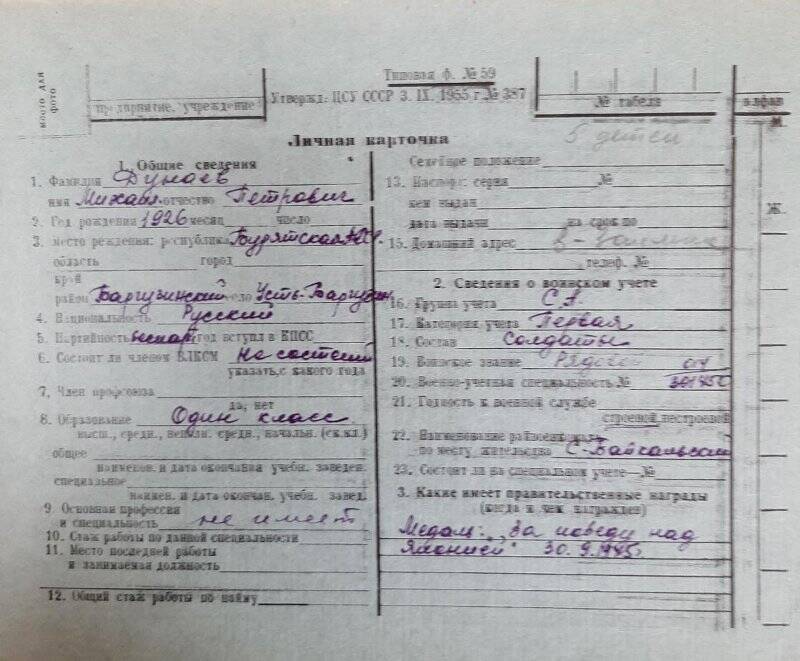 место для фото
Типовая ф. № 59
предприятие, учреждение
Утвержд. ЦСУ СССР 3. IX. 1955 г. № 387
№ табеля
алфав
Личная карточка
5 детей
М.
Ж.
1. Общие сведения
1. Фамилия Дунаев
имя Михаил отчество Петрович
2. Год рождения 1926 месяц число
3. место рождения: республика Бурятская
область город
край
район Баргузинский село Усть-Баргузин
4. Национальность Русский
5. Партийность беспар год вступл в КПСС
6. Состоит ли членом ВЛКСМ Не состоял
указать, с какого года
7. Член профсоюза
да, нет
8. Образование Один класс
высш., средн., неполн. средн., начальн. (ск.кл.)
общее
наименов. и дата окончания учебн. заведен.
специальное
наимен. и дата окончан. учебн. завед.
9 Основная профессия
и специальность не имеет
10. Стаж работы по данной специальности
11. Место последней работы
и занимаемая должность
12. Общий стаж работы по найму
Семейное положение
13. Паспорт: серия №
кем выдан
дата выдачи на срок по
15. Домашний адрес
телеф. №
2. Сведения о воинском учете
16. Группа учета С.А.
17. Категория учета Первая
18. Состав Солдаты
19. Воинское звание Рядовой
20. Военно-учетная специальность №
21. Годность к военной службе
строевой, нестроевой
22. Наименование
по месту жительства С-Байкальский
23. Состоит ли на специальном учете №
3. Какие имеет правительственные награды
(когда и чем награжден)
Медаль: „За победу над
Японией" 30. 9. 1945